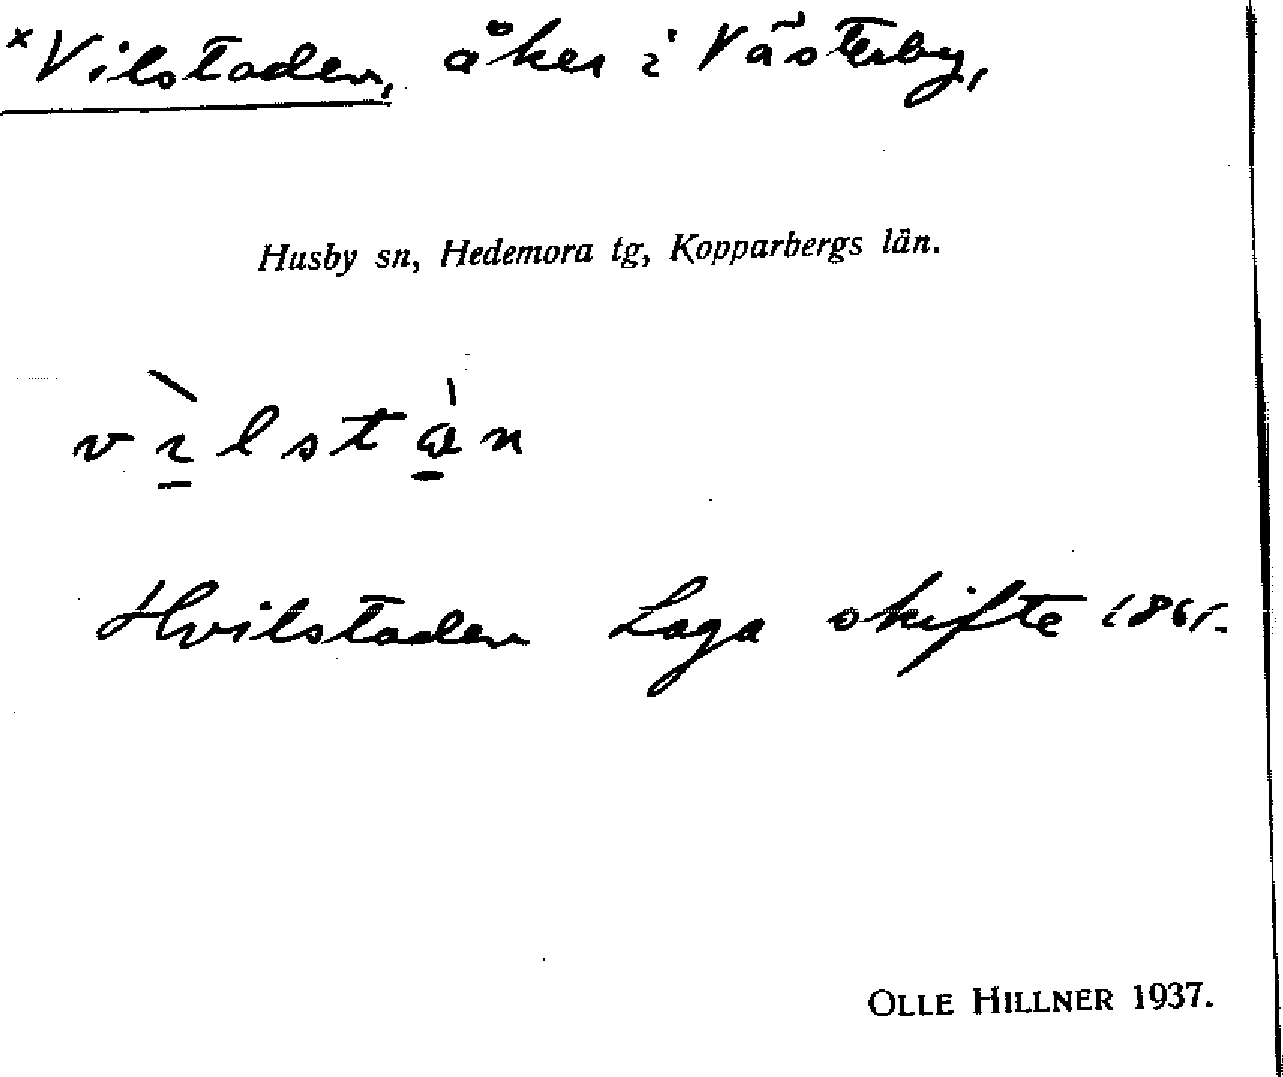 ×Vilstaden, åker i Västerby,
Husby sn, Hedemora tg, Kopparbergs län.
Hvilstaden Laga skifte
OLLE HILLNER 1937.